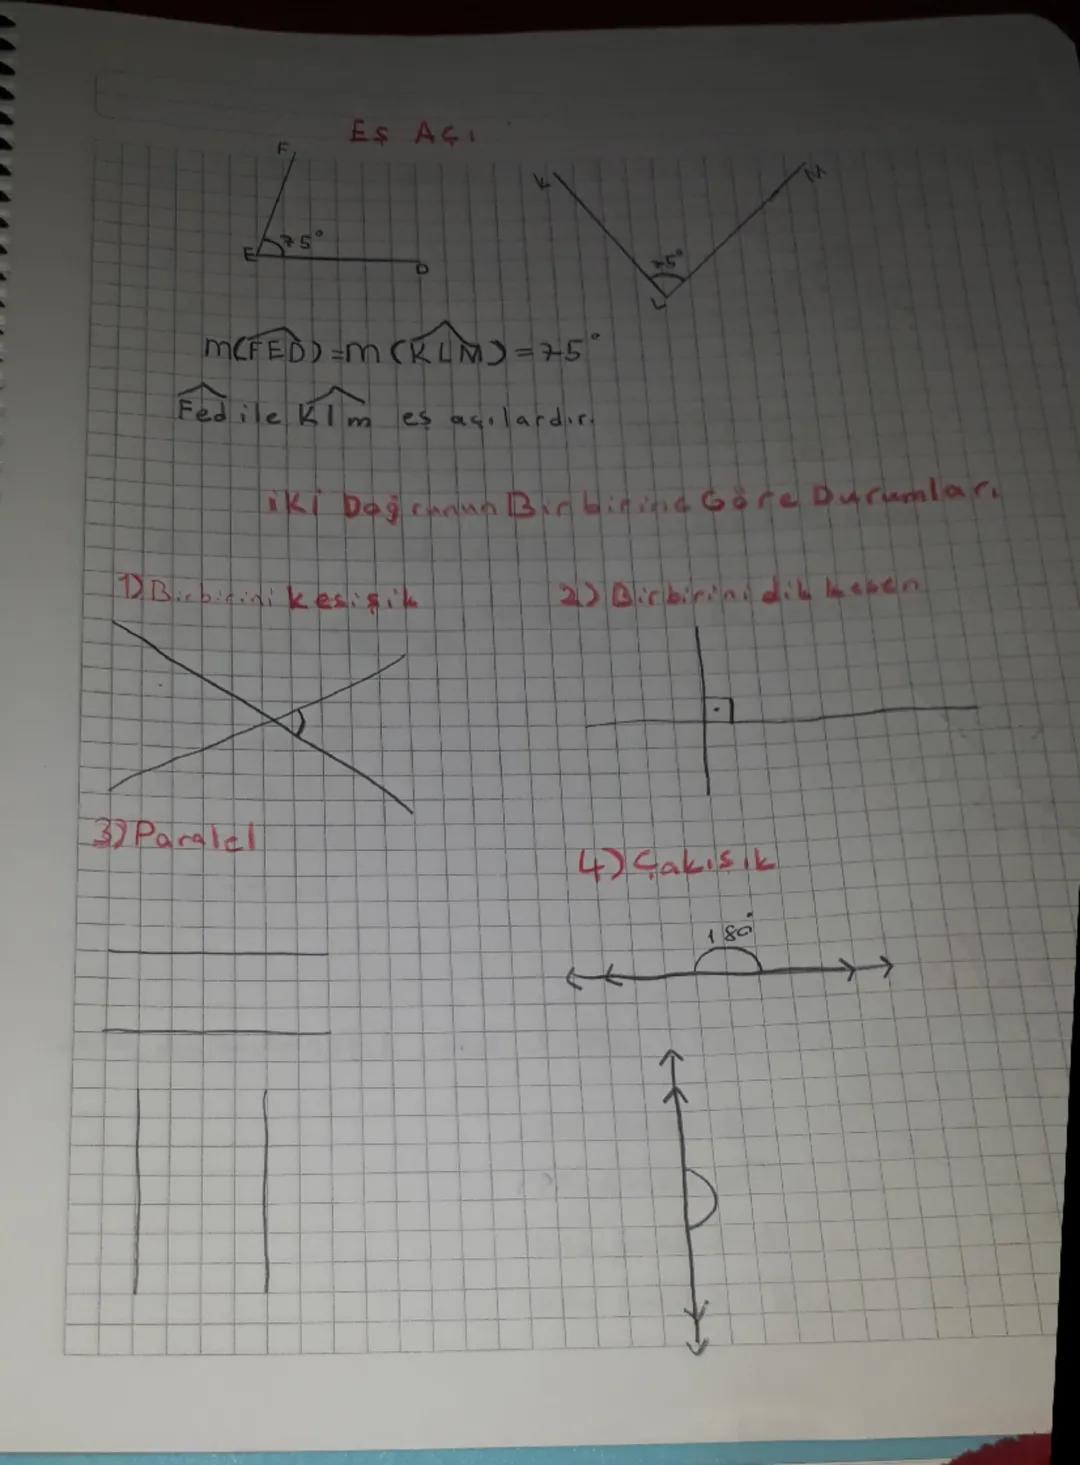 Eş Açı
F
K
M
75°
E
D
75°
L
m(FED)=m(KLM)=75°
Fed ile Klm eş açılardır.
iki Doğrunun Birbirine Göre Durumları
1) Birbirini kesişik
2) Birbirini dik kesen
3) Paralel
4) Çakışık
180°